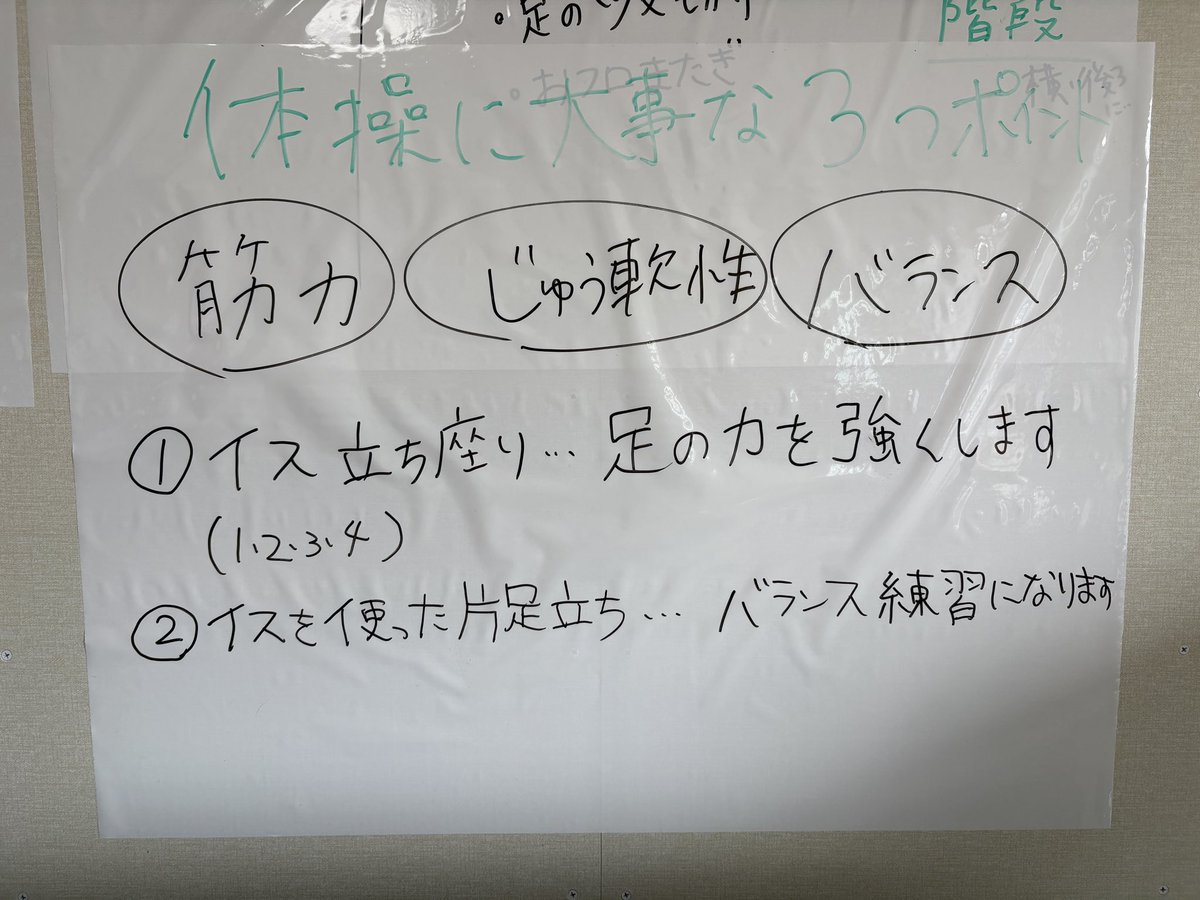 階段
体操に大事な3つポイント
筋力 じゅう軟性 バランス
① イス立ち座り… 足の力を強くします
(1、2、3、4)
② イスを使った片足立ち… バランス練習になります